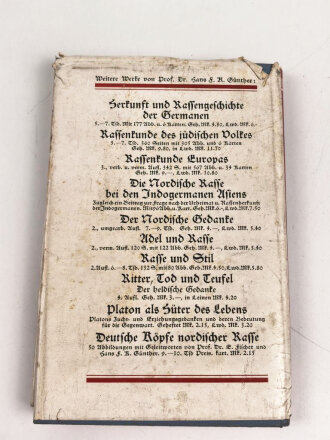 Weitere Werke von Prof. Dr. Hans F. K. Günther:
Herkunft und Rassengeschichte
der Germanen
5.—7. Tsd. Mit 177 Abb. u. 6 Karten. Geh. Mk. 4.80, Lwd. Mk. 6.—
Rassenkunde des jüdischen Volkes
5.—7. Tsd. 360 Seiten mit 305 Abb. und 6 Karten
Geh. Mk. 9.80, in Lwd. Mk. 11.70
Rassenkunde Europas
3., verb. u. verm. Aufl. 342 S. mit 567 Abb. u. 34 Karten
Geh. Mk. 9.—, Lwd. Mk. 10.80
Die Nordische Rasse
bei den Indogermanen Asiens
Zugleich ein Beitrag zur Frage nach der Urheimat u. Rassenherkunft
der Indogermanen.
Der Nordische Gedanke
2., umgearb. Aufl. 7.—9. Tsd. Geh. Mk. 4.—, Lwd. Mk. 5.40
Adel und Rasse
2., verm. Aufl. 120 S. mit 122 Abb. Geh. Mk. 4.—, Lwd. Mk. 5.40
Rasse und Stil
2. Aufl. 6.—8. Tsd. 132 S. mit 80 Abb. Geh. Mk. 4.50, Lwd. Mk. 5.80
Ritter, Tod und Teufel
Der heldische Gedanke
4. Aufl. Geh. Mk. 3.—, in Leinen Mk. 4.20
Platon als Hüter des Lebens
Platons Zucht- und Erziehungsgedanken und deren Bedeutung
für die Gegenwart. Geheftet Mk. 2.15, Lwd. Mk. 3.20
Deutsche Köpfe nordischer Rasse
50 Abbildungen mit Geleitworten von Prof. Dr. E. Fischer und
Hans F. K. Günther. 9.—10. Tsd Preis kart. Mk. 2.15